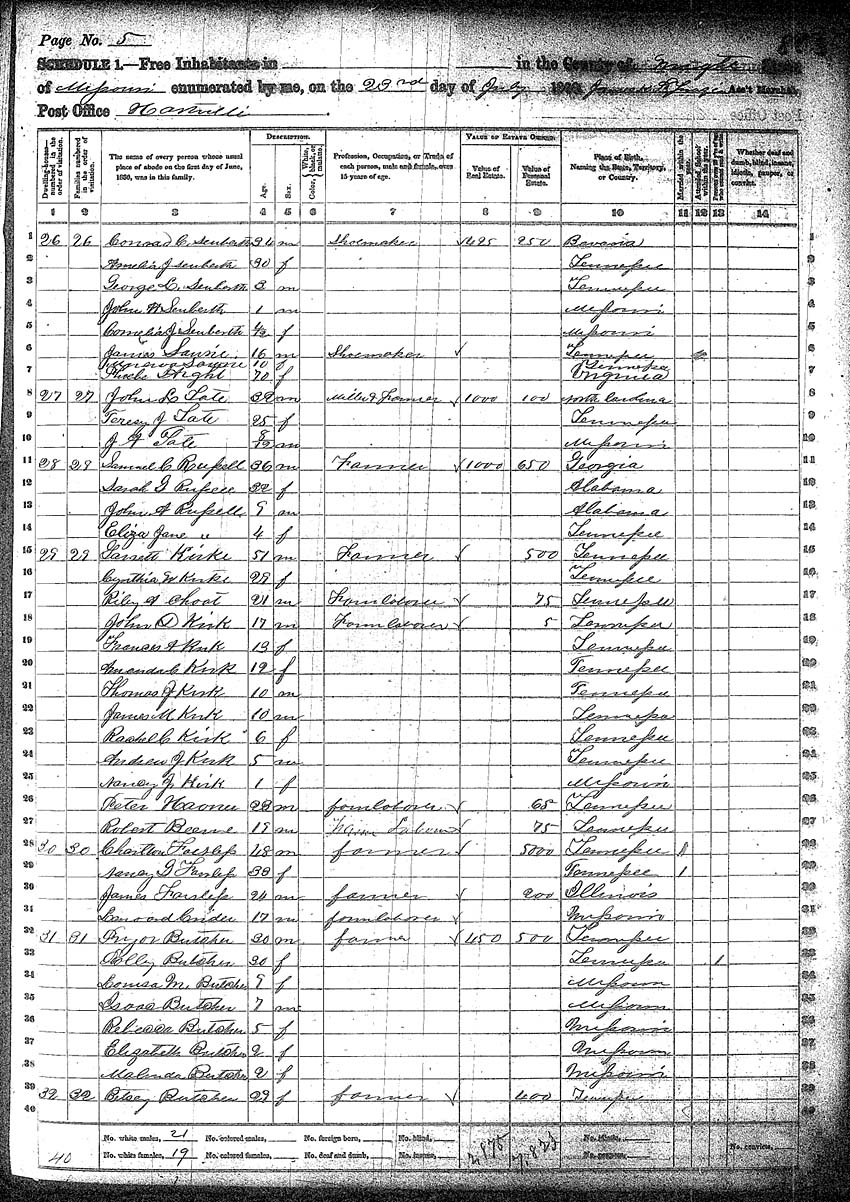 Page No. 5
SCHEDULE 1.—Free Inhabitants in in the County of Wright State
of Missouri enumerated by me, on the 23rd day of July 1860. Ass't Marshal.
Post Office
DESCRIPTION. VALUE OF ESTATE OWNED.
Dwelling-houses—numbered in the order of visitation. Families numbered in the order of visitation. The name of every person whose usual place of abode on the first day of June, 1860, was in this family. Age. Sex. Color, White, black, or mulatto. Profession, Occupation, or Trade of each person, male and female, over 15 years of age. Value of Real Estate. Value of Personal Estate. Place of Birth, Naming the State, Territory, or Country. Married within the year. Attended School within the year. Whether deaf and dumb, blind, insane, idiotic, pauper, or convict.
1 2 3 4 5 6 7 8 9 10 11 12 13 14
1 26 26 Conrad C. Senberth 34 m Shoemaker 425 250 Bavaria 1
2 Amelia J Senberth 30 f Tennessee 2
3 George L. Senberth 3 m Tennessee 3
4 John H Senberth 1 m Missouri 4
5 Cornelia J Senberth f Missouri 5
6 James 16 m Shoemaker Tennessee 6
10 f Tennessee
7 Phoebe 70 f Virginia 7
8 27 27 John L Tate 32 m Miller & Farmer 1000 100 North Carolina 8
9 Teresy J Tate 25 f Tennessee 9
10 J Tate 8/12 m Missouri 10
11 28 28 Samuel C Russell 36 m Farmer 1000 650 Georgia 11
12 Sarah Russell 32 f Alabama 12
13 John A Russell 9 m Alabama 13
14 Eliza Jane " 4 f Tennessee 14
15 29 29 Garrett Kirk 51 m Farmer 500 Tennessee 15
16 Cynthia W Kirk 29 f Tennessee 16
17 Riley A Choat 21 m Farmlaborer 75 Tennessee 17
18 John D Kirk 17 m Farmlaborer 5 Tennessee 18
19 Frances A Kirk 13 f Tennessee 19
20 Amanda C Kirk 12 f Tennessee 20
21 Thomas J Kirk 10 m Tennessee 21
22 James M Kirk 10 m Tennessee 22
23 Rachel C Kirk 6 f Tennessee 23
24 Andrew J Kirk 5 m Tennessee 24
25 Nancy J Kirk 1 f Missouri 25
26 Peter 23 m farmlaborer 65 Tennessee 26
27 Robert 19 m Farm Laborer 75 Tennessee 27
28 30 30 Charlton 48 m farmer 5000 Tennessee 1 28
29 Nancy 38 f Tennessee 1 29
30 James 24 m farmer 200 Illinois 30
31 17 m farmlaborer Missouri 31
32 31 31 Pryor Butcher 30 m farmer 450 500 Tennessee 32
33 Polly Butcher 30 f Tennessee 1 33
34 Louisa M. Butcher 9 f Missouri 34
35 Isaac Butcher 7 m Missouri 35
36 Rebecca Butcher 5 f Missouri 36
37 Elizabeth Butcher 2 f Missouri 37
38 Malinda Butcher 2 f Missouri 38
39 32 32 Betsey Butcher 29 f farmer 400 Tennessee 39
40 40
No. white males, 21 No. colored males, No. foreign born, No. blind,
40 No. white females, 19 No. colored females, No. deaf and dumb, No. insane, No. idiotic, No. paupers, No. convicts,